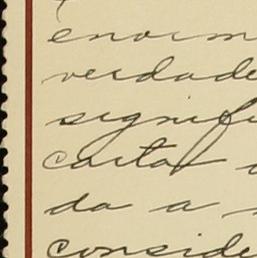 enorm
verdade
signifi
cartas
da a
conside